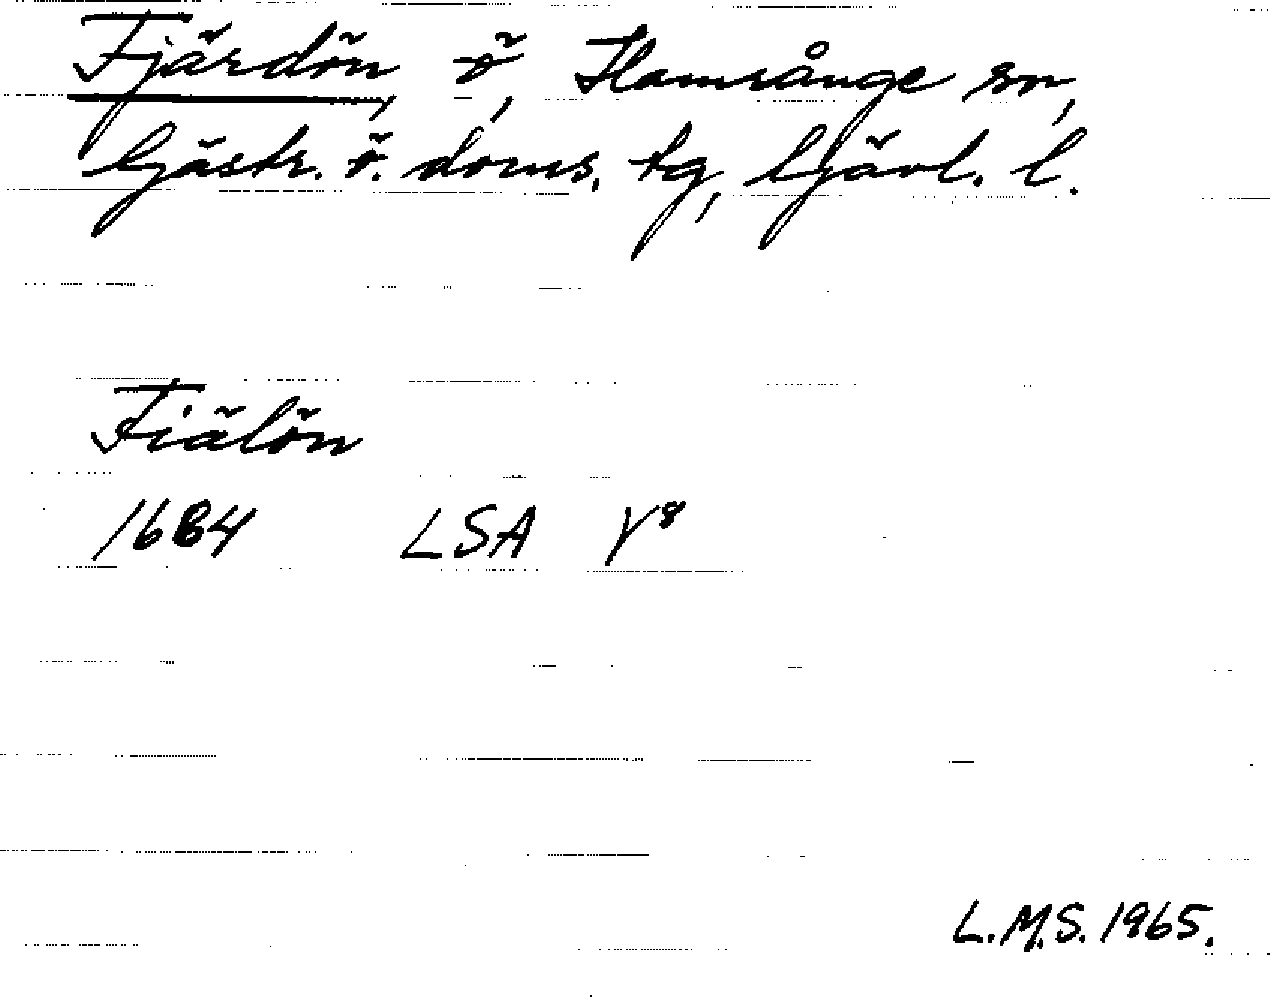 Fjärdön, ö, Hamrånge sn,
Gästr. ö. doms. tg, Gävl. l.
Fiälön
1684 LSA Y8
L.M.S. 1965.